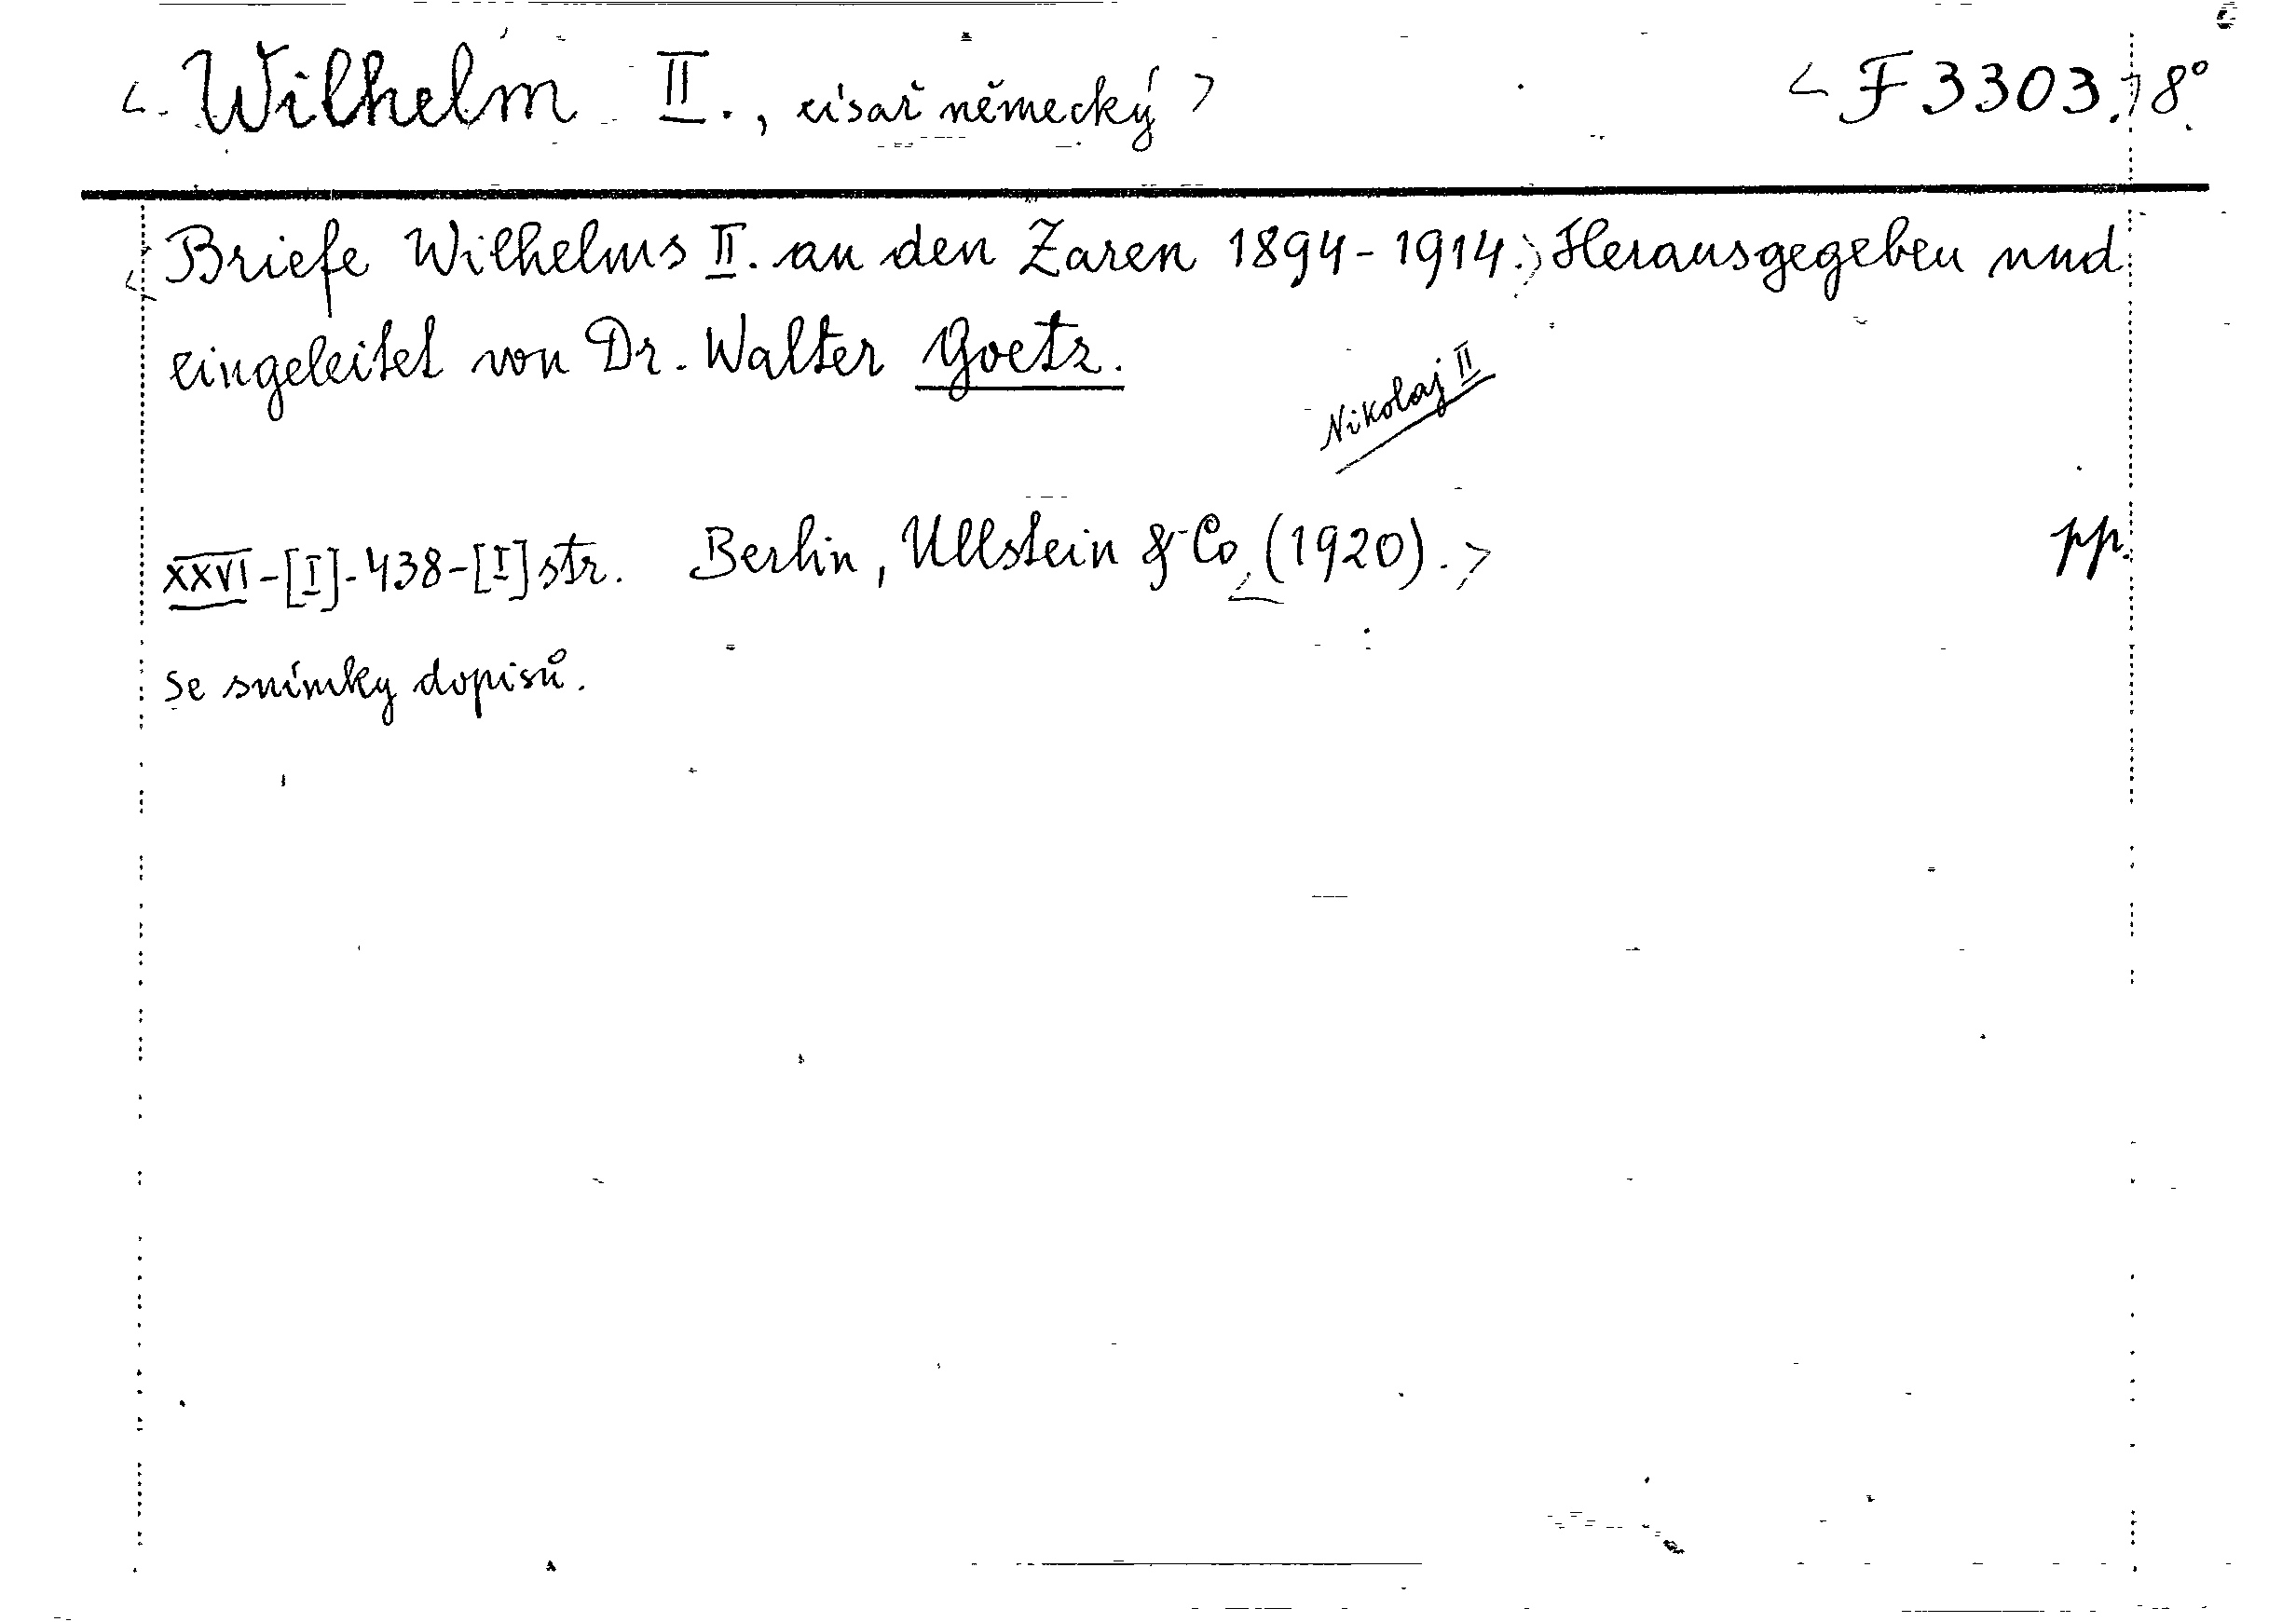 < Wilhelm II., císař německý > < F 3303.> 8°.
< Briefe Wilhelms II. an den Zaren 1894-1914.> Herausgegeben und
eingeleitet von Dr. Walter Goetz.
Nikolaj II
XXVI-[I]-438-[I] str. Berlin, Ullstein & Co < (1920). > pp.
se snímky dopisů.